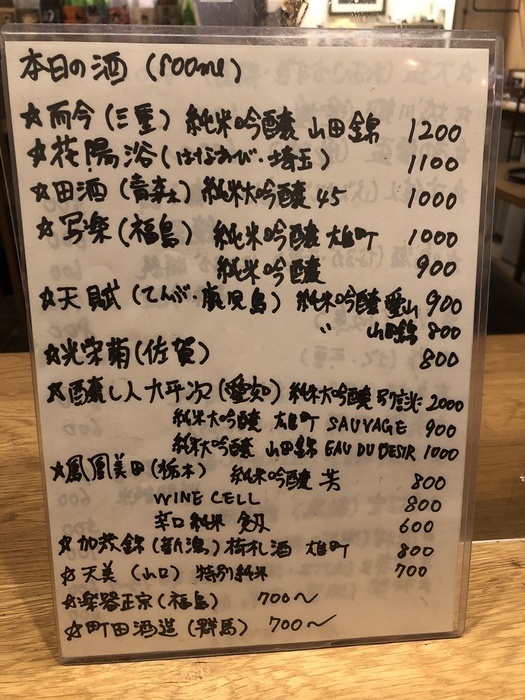 本日の酒 (100ml)
☆而今 (三重) 純米吟醸 山田錦 1200
☆花陽浴 (はなあび・埼玉) 1100
☆田酒 (青森) 純米大吟醸 45 1000
☆写楽 (福島) 純米吟醸 雄町 1000
純米吟醸 900
☆天賦 (てんぶ・鹿児島) 純米吟醸 愛山 900
〃 山田錦 800
☆光栄菊 (佐賀) 800
☆醸し人九平次 (愛知) 純米大吟醸 別誂 2000
純米大吟醸 雄町 SAUVAGE 900
純米大吟醸 山田錦 EAU DU DESIR 1000
☆鳳凰美田 (栃木) 純米吟醸 芳 800
WINE CELL 800
辛口純米 剱 600
☆加茂錦 (新潟) 荷札酒 雄町 800
☆天美 (山口) 特別純米 700
☆楽器正宗 (福島) 700〜
☆町田酒造 (群馬) 700〜